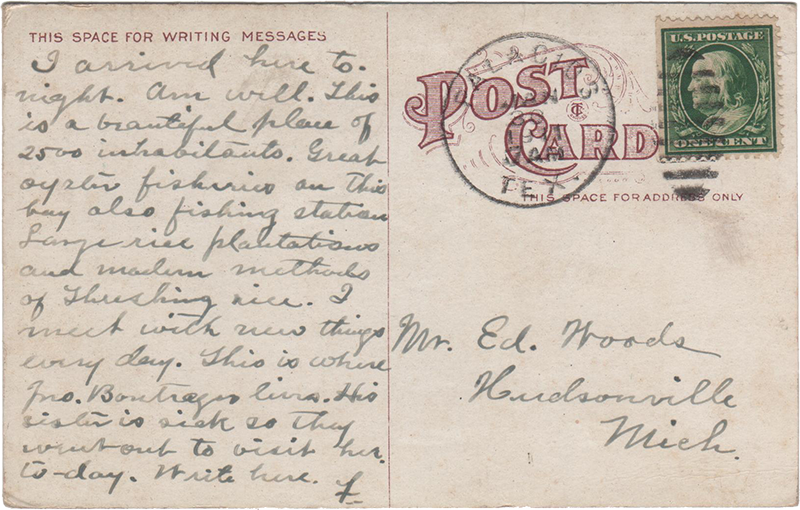 THIS SPACE FOR WRITING MESSAGES
I arrived here to-
night. Am well. This
is a beautiful place of
2500 inhabitants. Great
oyster fisheries on this
bay also fishing station
Large rice plantations
and modern methods
of Threshing rice. I
meet with new things
every day. This is where
Jno. Bontrager lives. His
sister is sick so they
went out to visit her
to-day. Write here.
POST
CARD
PALACIOS
TEX
THIS SPACE FOR ADDRESS ONLY
U.S. POSTAGE
ONE CENT
Mr. Ed. Woods
Hudsonville
Mich.